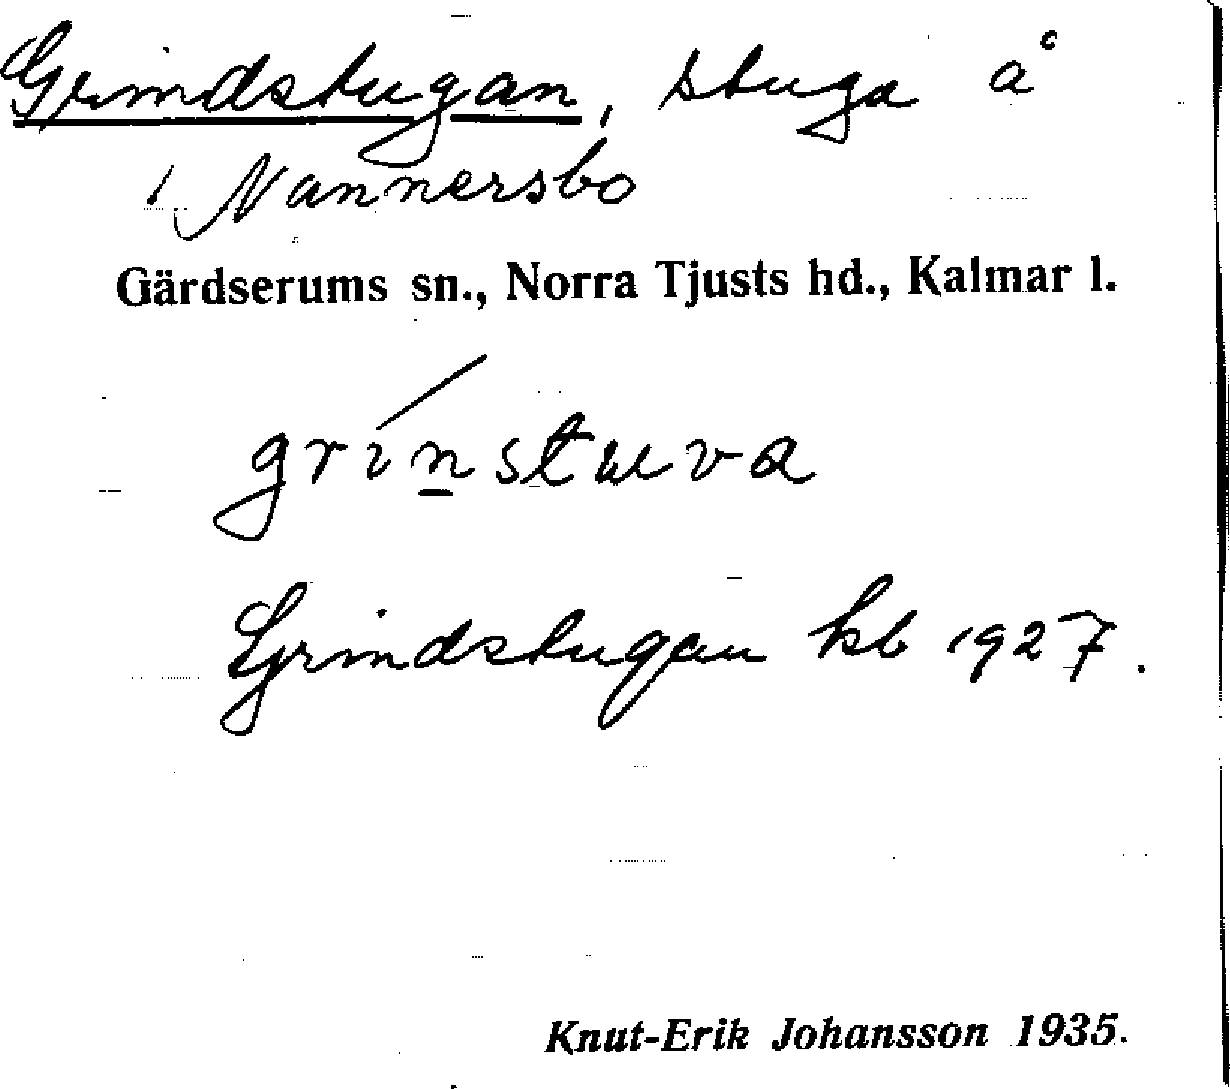 Grindstugan, stuga å
i Nannersbo
Gärdserums sn., Norra Tjusts hd., Kalmar l.
grínstuva
Grindstugan kb 1927.
Knut-Erik Johansson 1935.